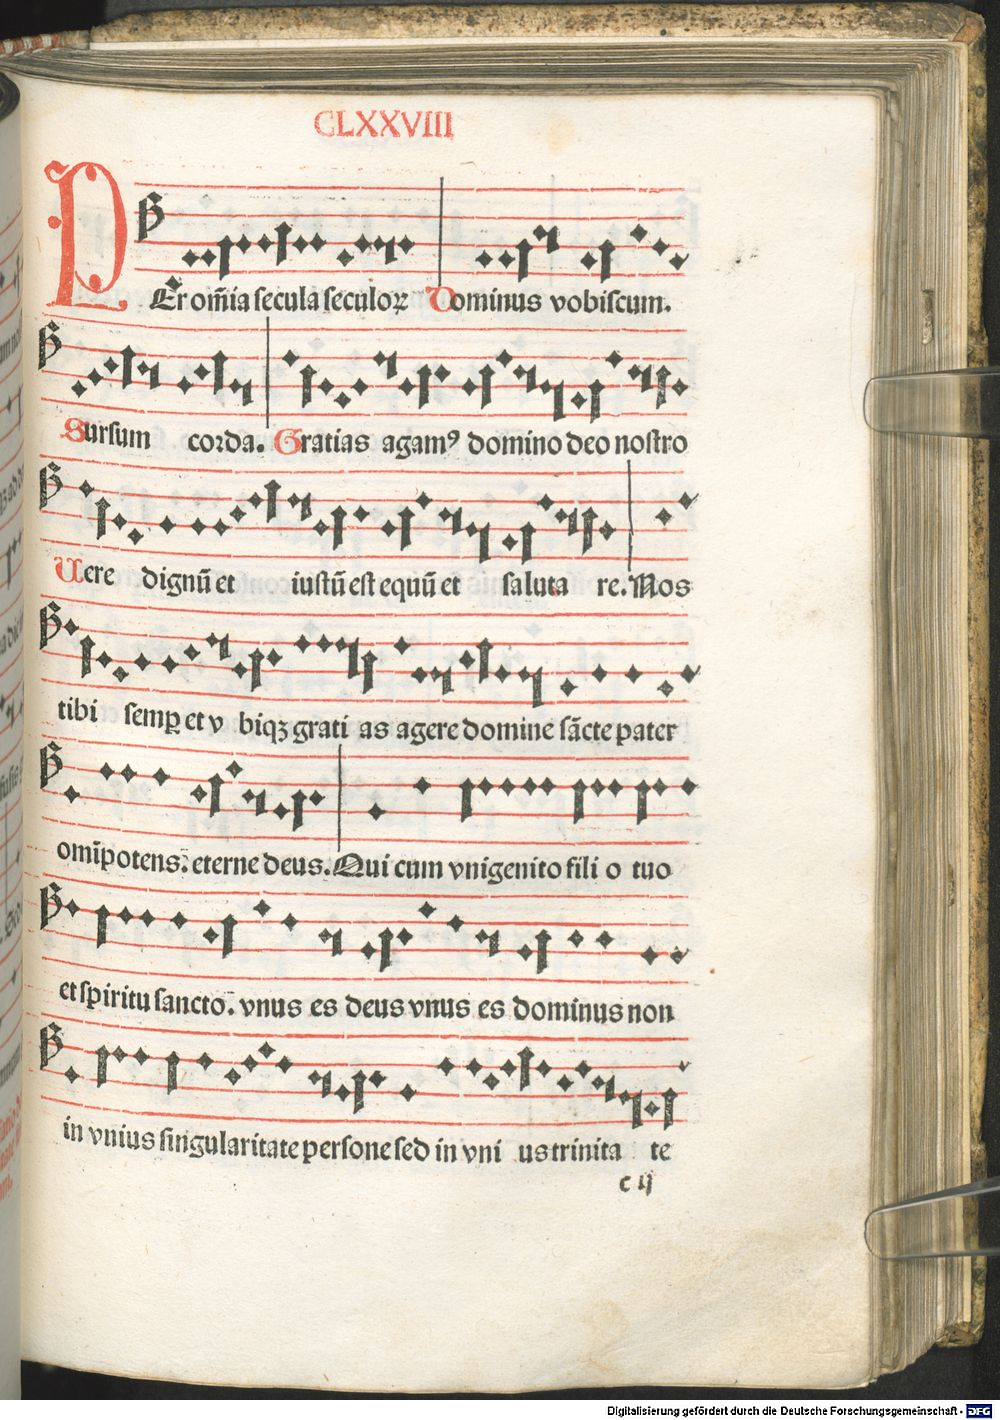 CLXXVIII
PEr om̄ia secula seculoꝝ Dominus vobiscum.
Sursum corda. Gratias agamꝰ domino deo nostro
Uere dignū et iustū est equū et saluta re. Nos
tibi semꝑ et v biqꝫ grati as agere domine sācte pater
omīpotens: eterne deus. Qui cum vnigenito fili o tuo
et spiritu sancto. vnus es deus vnus es dominus non
in vnius singularitate persone sed in vni us trinita te
c ij
Digitalisierung gefördert durch die Deutsche Forschungsgemeinschaft - DFG